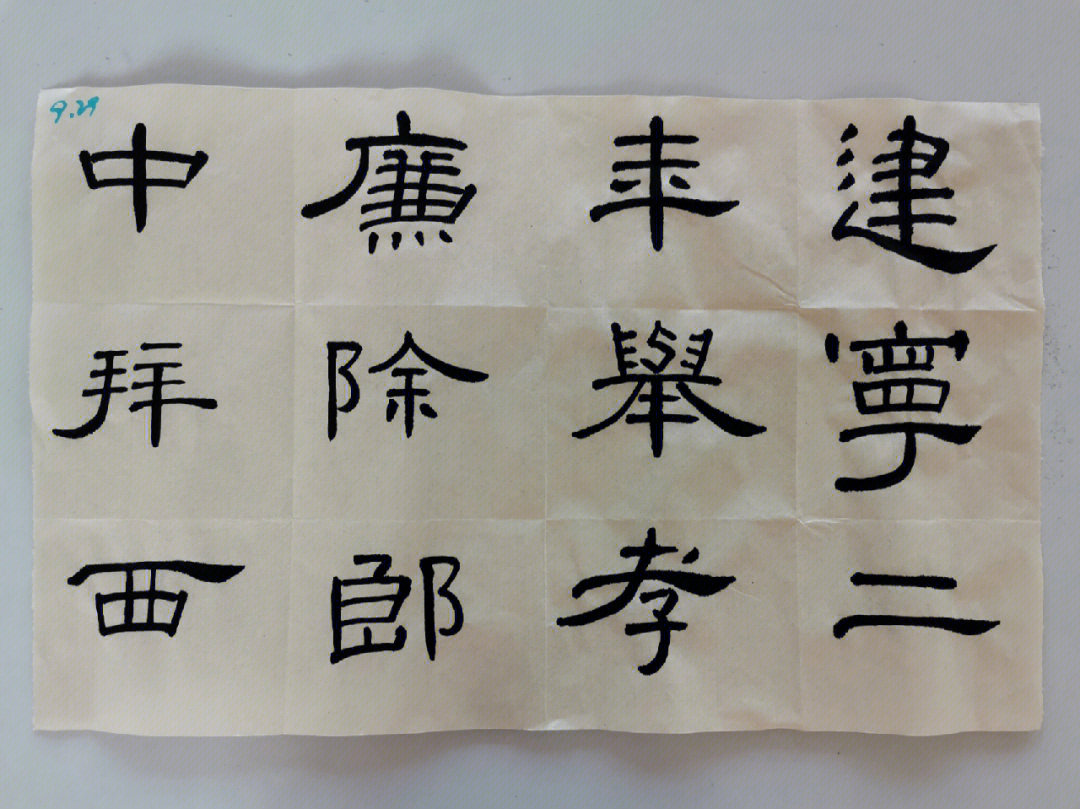 9.29
建寧二
年舉孝
廉除郎
中拜西